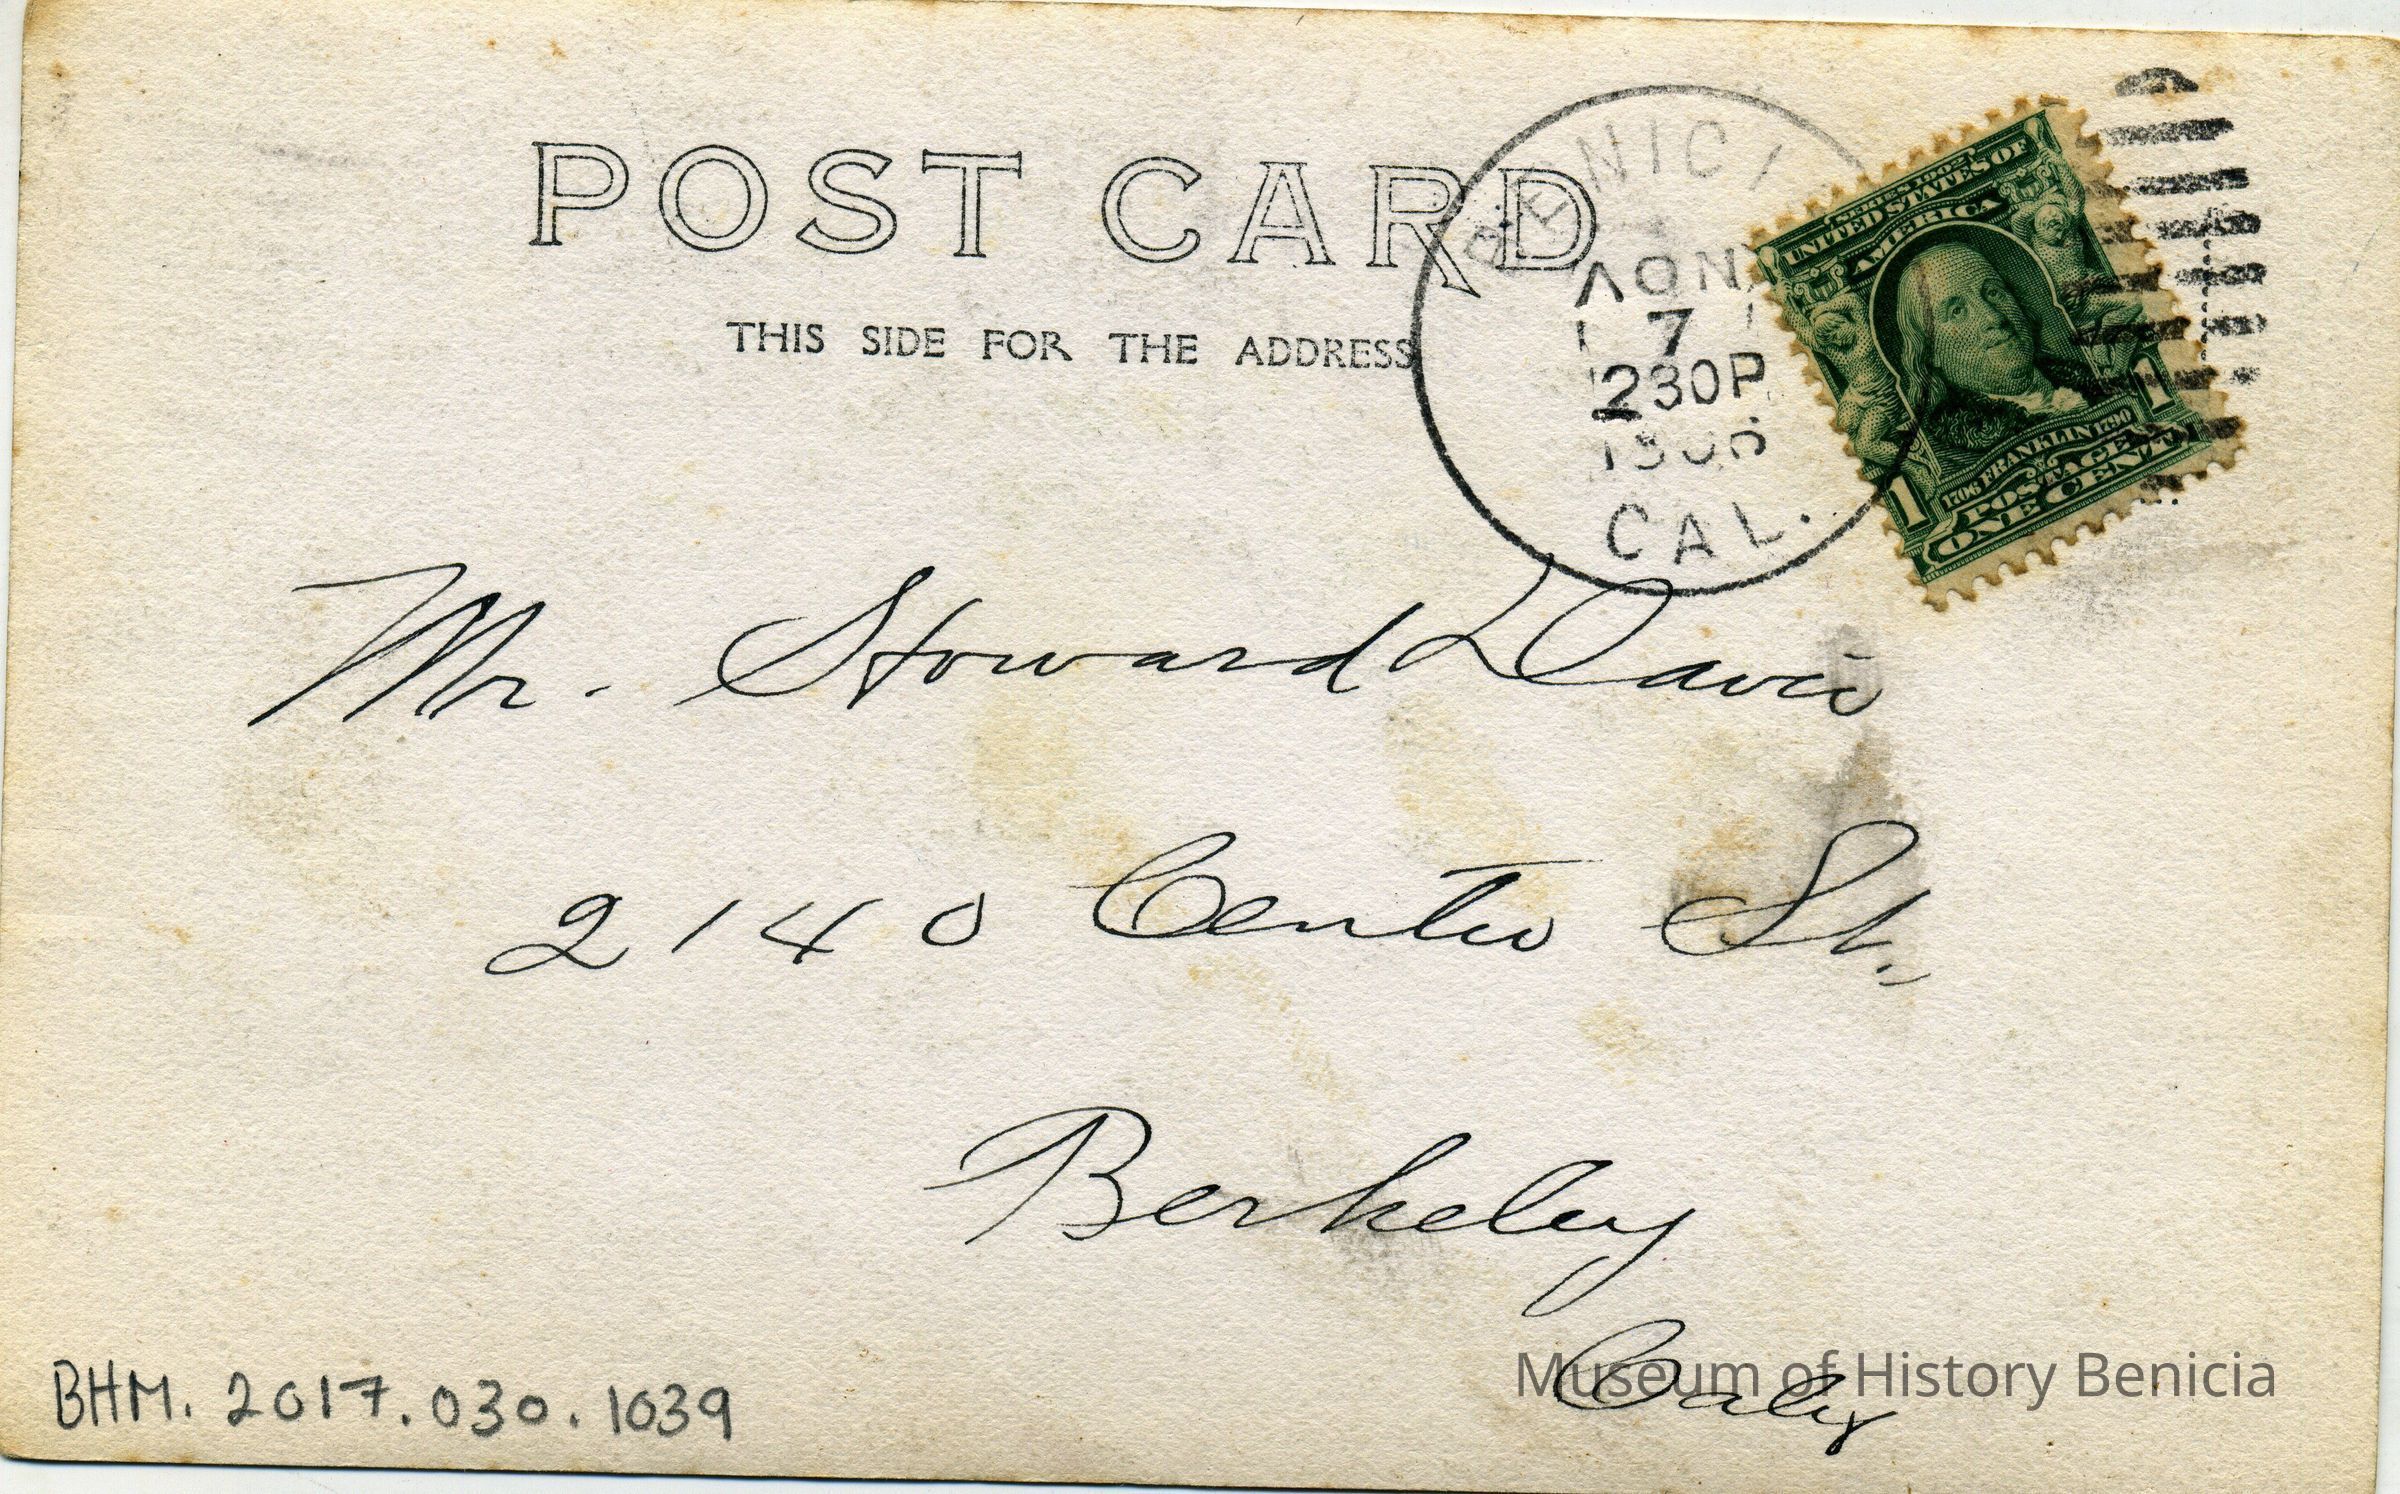 POST CARD
THIS SIDE FOR THE ADDRESS
BENICI
NOV
7
230P
1906
CAL.
SERIES 1902
UNITED STATES OF
AMERICA
1706 FRANKLIN 1790
1 1
POSTAGE
ONE CENT
Mr. Howard Davis
2140 Center St.,
Berkeley
Calif
BHM. 2017.030.1039
Museum of History Benicia